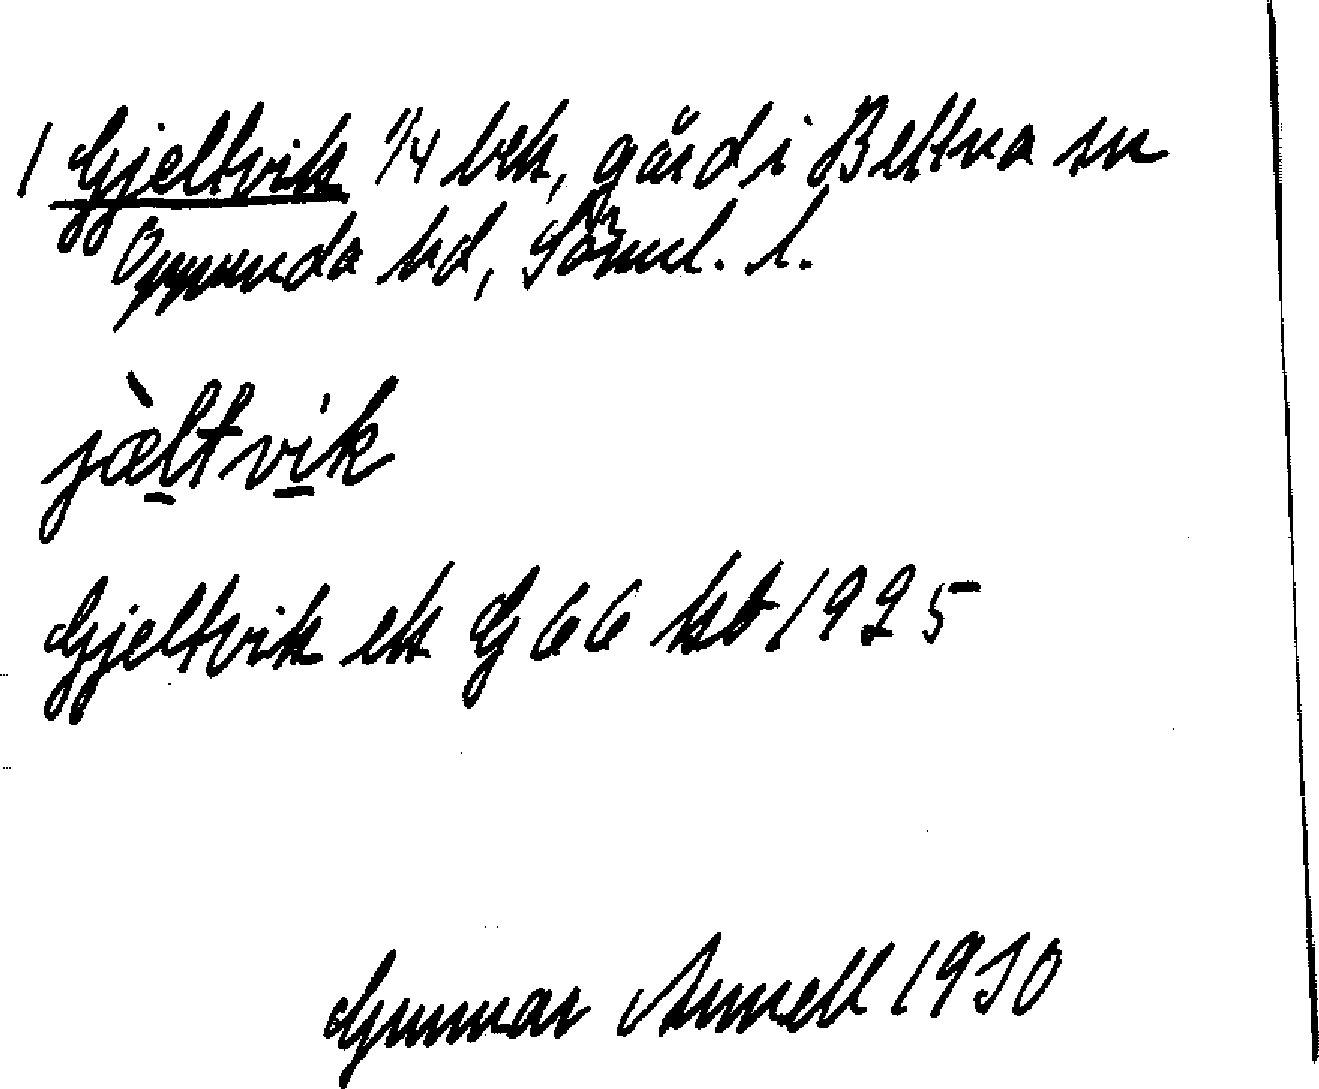 1 Gjeltvik 1/4 bek, gård i Bettna sn
Oppunda hd, Söml. l.
jàltvik
Gjeltvik ek G 66 kb 1925
Gunnar Arnell 1930